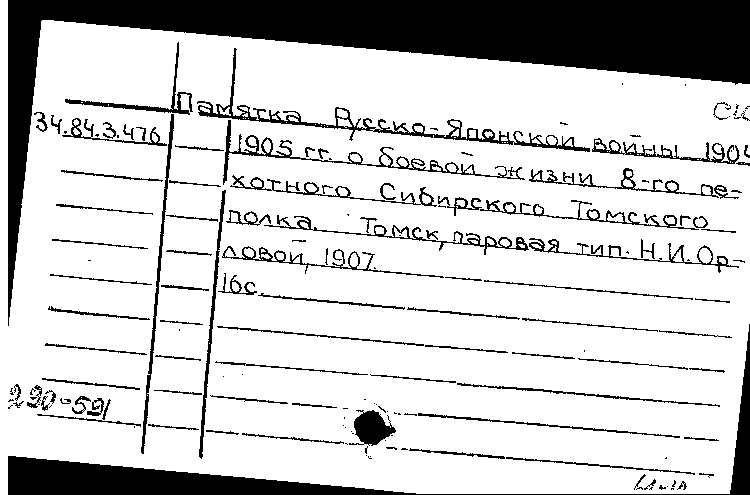 Памятка Русско-Японской войны 1904
34.84.3.476
1905 гг. о боевой жизни 8-го пе-
хотного Сибирского Томского
полка. Томск, паровая тип. Н.И.Ор-
ловой, 1907.
16с.
290-591